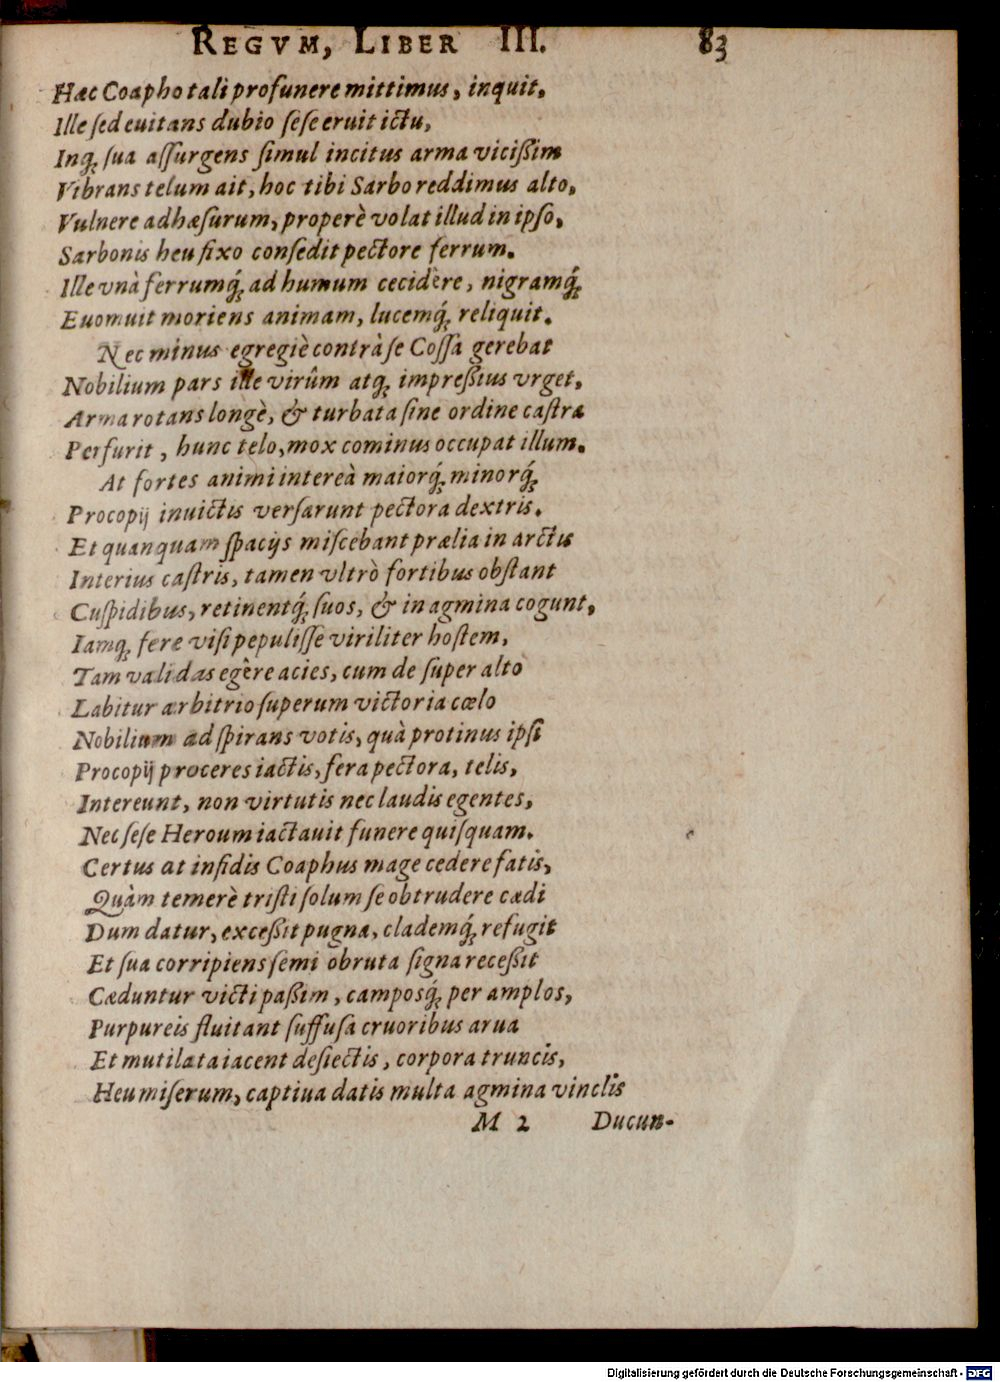 REGVM, LIBER III. 83
Hæc Coapho tali pro funere mittimus, inquit,
Ille sed euitans dubio sese eruit ictu,
Inq; sua assurgens simul incitus arma vicißim
Vibrans telum ait, hoc tibi Sarbo reddimus alto,
Vulnere adhæsurum, properè volat illud in ipso,
Sarbonis heu fixo consedit pectore ferrum.
Ille vnà ferrumq́; ad humum cecidêre, nigramq́;
Euomuit moriens animam, lucemq́; reliquit.
Nec minus egregiè contrà se Cossa gerebat
Nobilium pars ille virûm atq; impreßius vrget,
Arma rotans longè, & turbata sine ordine castra
Perfurit, hunc telo, mox cominus occupat illum.
At fortes animi intereà maiorq́; minorq́;
Procopij inuictis versarunt pectora dextris.
Et quanquam spacijs miscebant prælia in arctis
Interius castris, tamen vltrò fortibus obstant
Cuspidibus, retinentq́; suos, & in agmina cogunt,
Iamq; fere visi pepulisse viriliter hostem,
Tam validas egêre acies, cum de super alto
Labitur arbitrio superum victoria cœlo
Nobilium adspirans votis, quà protinus ipsi
Procopij proceres iactis, fera pectora, telis,
Intereunt, non virtutis nec laudis egentes,
Nec sese Heroum iactauit funere quisquam.
Certus at infidis Coaphus mage cedere fatis,
Quàm temerè tristi solum se obtrudere cædi
Dum datur, exceßit pugna, clademq́; refugit
Et sua corripiens semi obruta signa receßit
Cæduntur victi paßim, camposq́; per amplos,
Purpureis fluitant suffusa cruoribus arua
Et mutilata iacent desiectis, corpora truncis,
Heu miserum, captiua datis multa agmina vinclis
M 2 Ducun-
Digitalisierung gefördert durch die Deutsche Forschungsgemeinschaft - DFG